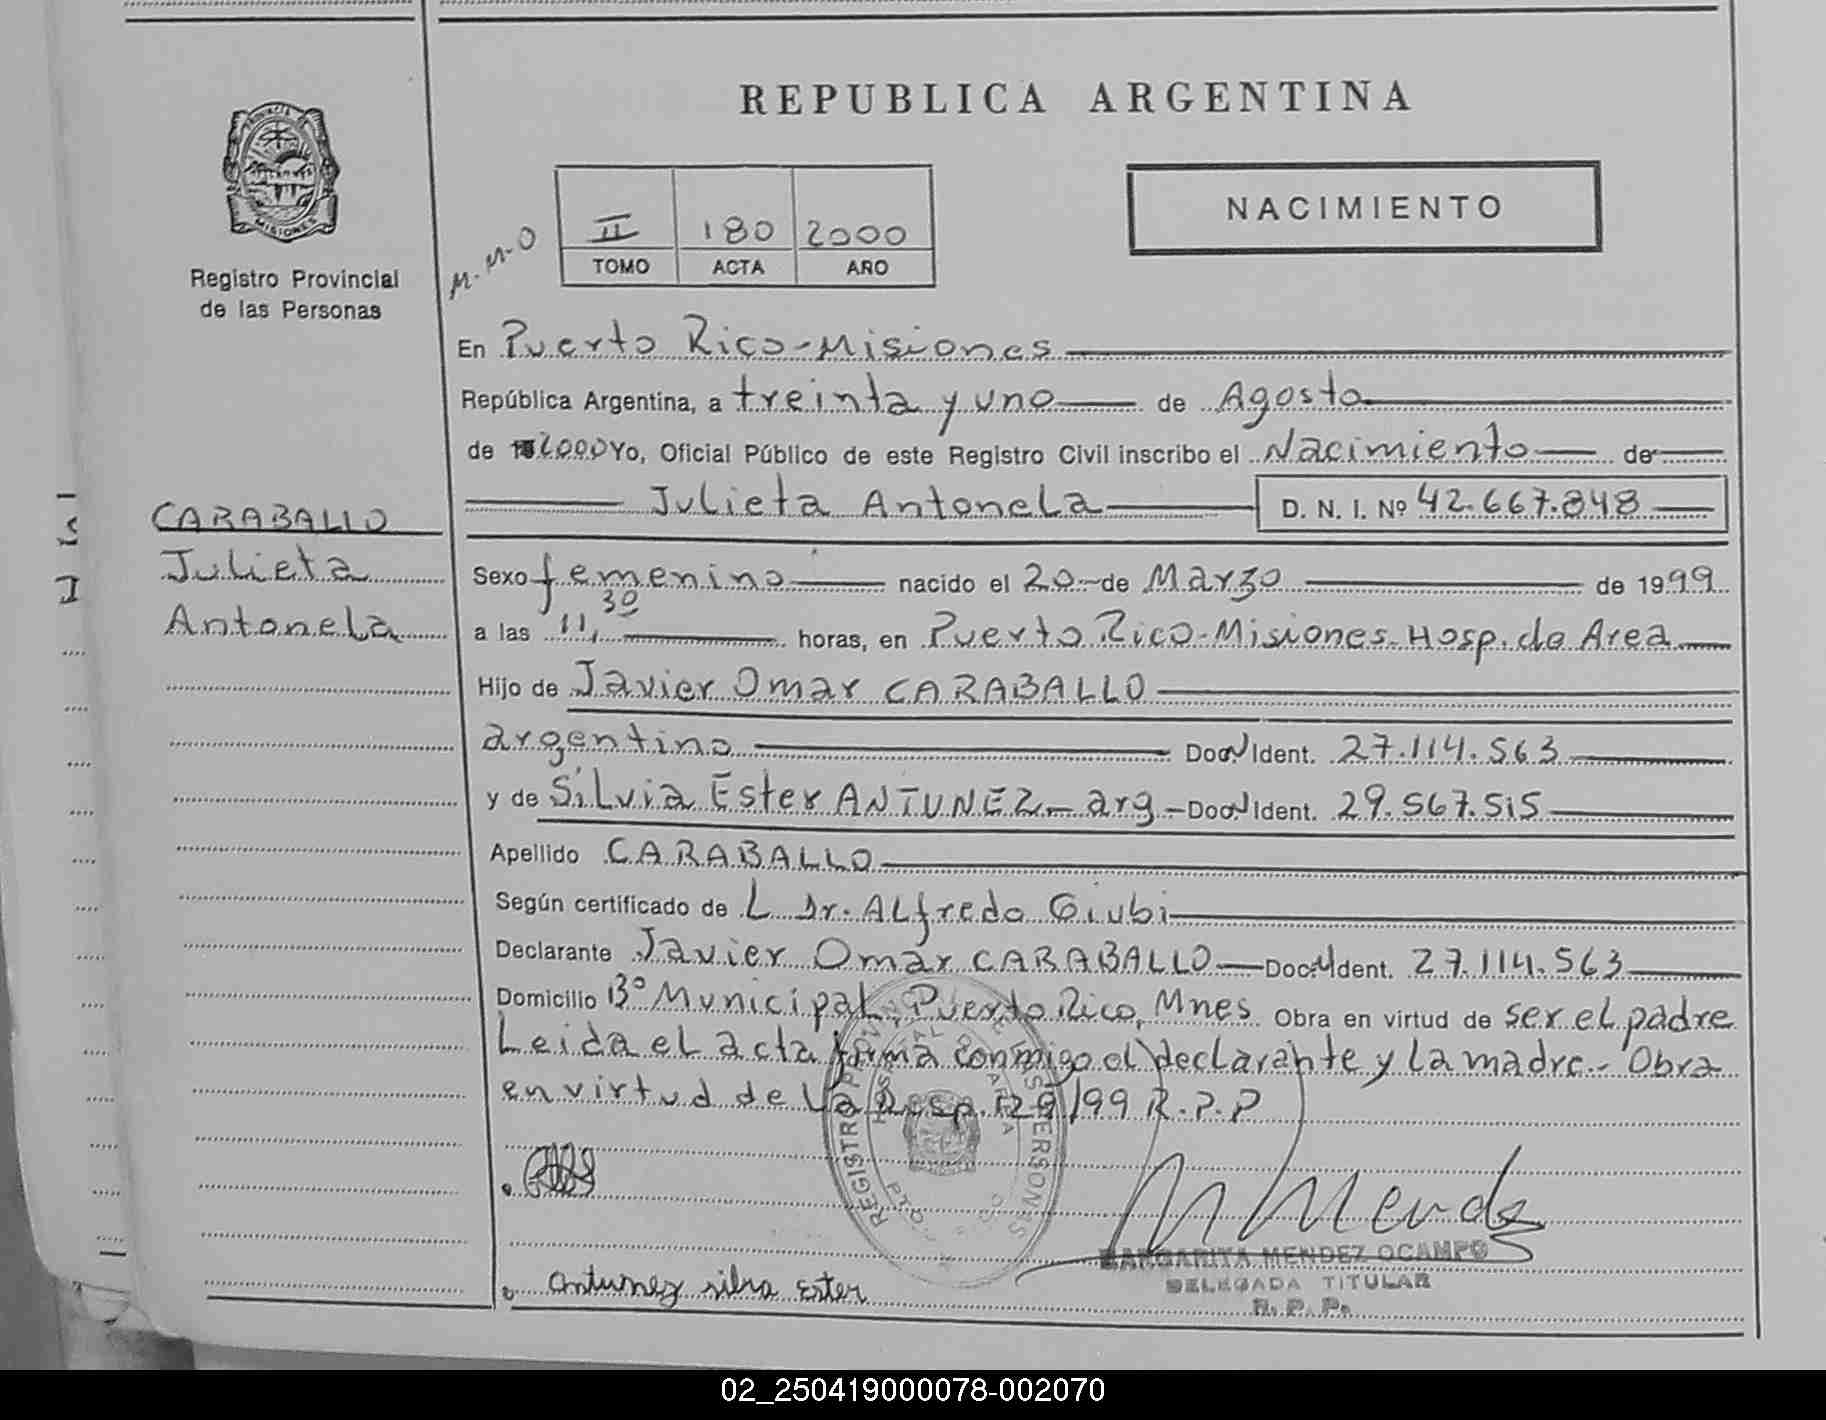 REPUBLICA ARGENTINA
PROVINCIA DE
MISIONES
Registro Provincial
de las Personas
NACIMIENTO
M.M.O
II 180 2000
TOMO ACTA AÑO
En Puerto Rico-Misiones
República Argentina, a treinta y uno de Agosto
de 2000 Yo, Oficial Público de este Registro Civil inscribo el Nacimiento de
Julieta Antonela D. N. I. Nº 42.667.848
CARABALLO
Julieta
Antonela
Sexo femenino nacido el 20 de Marzo de 1999
a las 11,30 horas, en Puerto Rico-Misiones-Hosp. de Area
Hijo de Javier Omar CARABALLO
argentino Doc. N Ident. 27.114.563
y de Silvia Ester ANTUNEZ - arg - Doc. N Ident. 29.567.515
Apellido CARABALLO
Según certificado de L Dr. Alfredo Giubi
Declarante Javier Omar CARABALLO Doc. N Ident. 27.114.563
Domicilio Bº Municipal, Puerto Rico, Mnes Obra en virtud de ser el padre
Leida el acta firma conmigo el declarante y la madre.- Obra
en virtud de la Disp. 129/99 R.P.P
REGISTRO PROVINCIAL DE LAS PERSONAS
Antunez silvia Ester
MARGARITA MENDEZ OCAMPO
DELEGADA TITULAR
R. P. P.
02_250419000078-002070